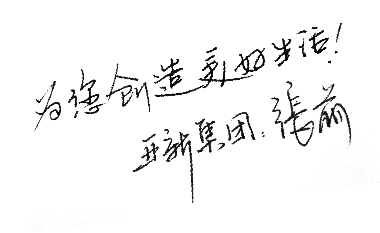 为您创造更好生活!
亚新集团:張前